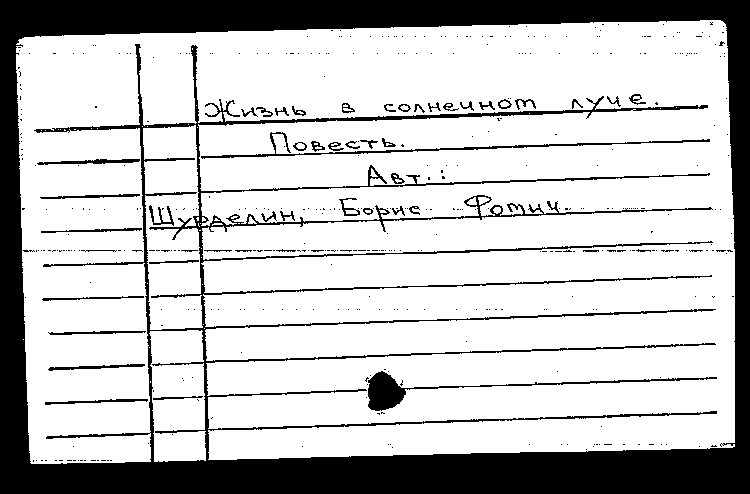 Жизнь в солнечном луче.
Повесть.
Авт.:
Шурделин, Борис Фотич.